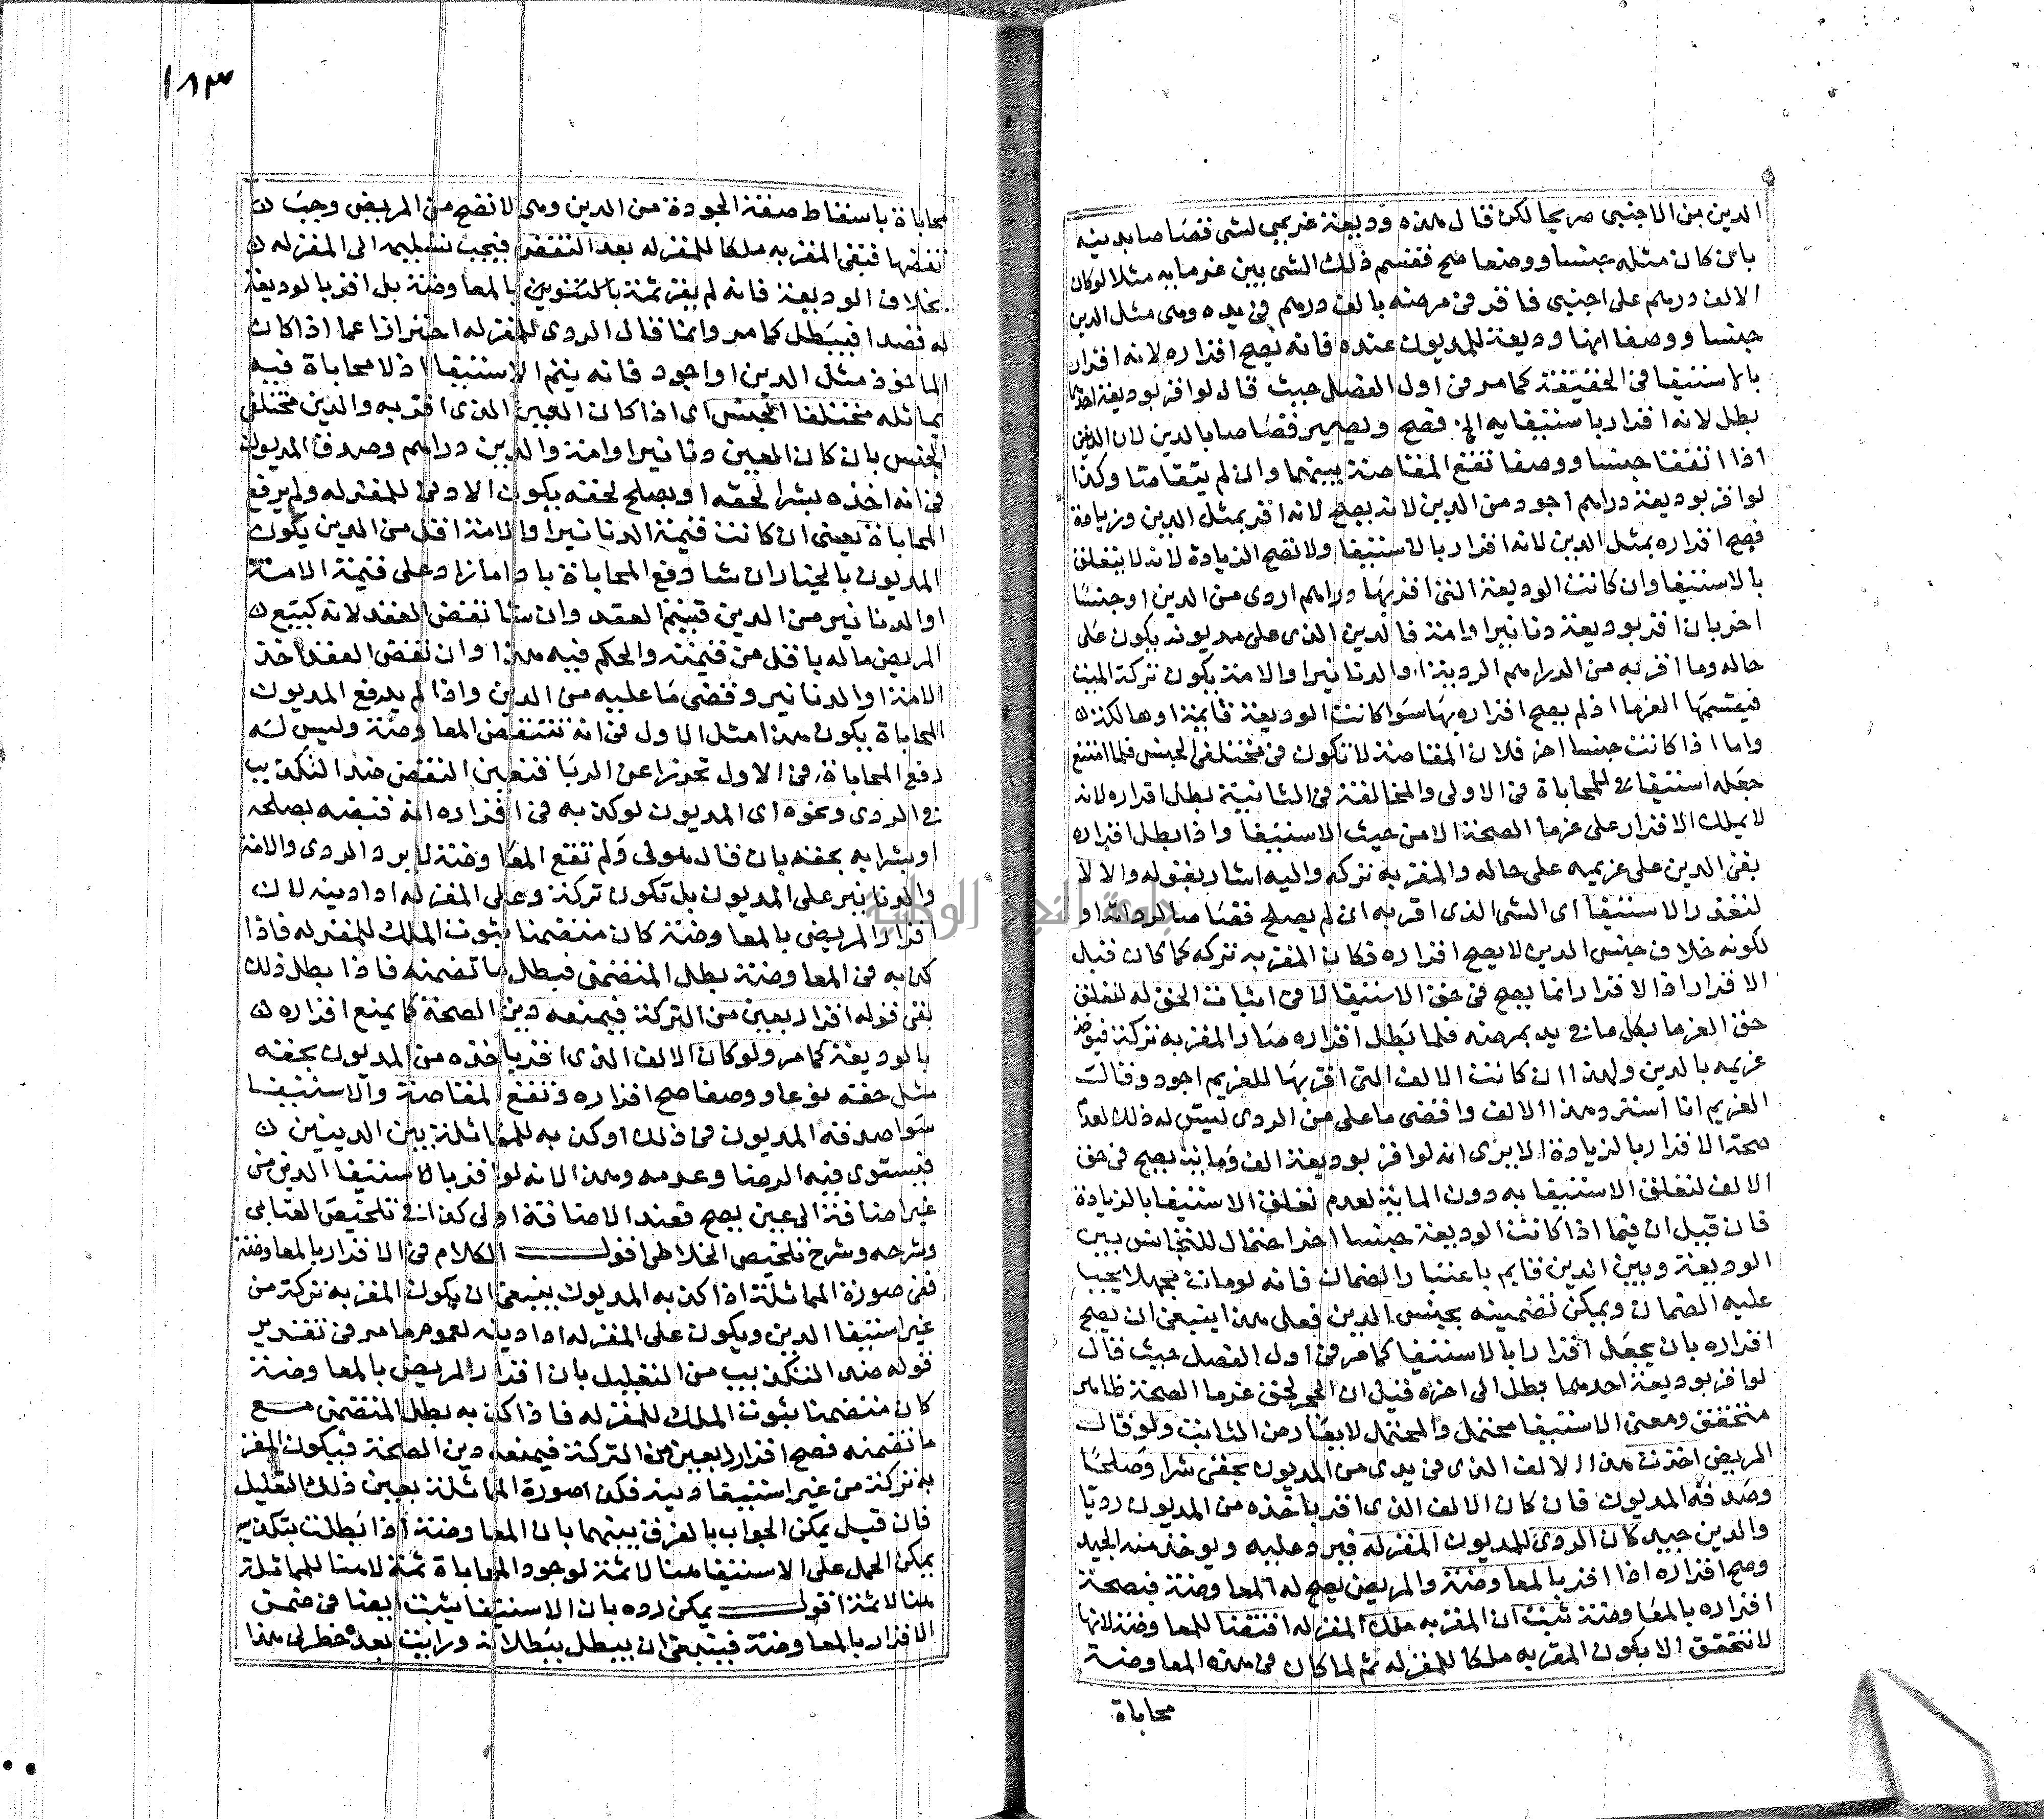 الدين من الاجنبى صريحا لكن قال هذه وديعة غريمى لشى فقصاصا بدينه
بان كان مثله جنسا ووصفا صح فقسم ذلك الشى بين غرمايه مثلا لو كان
الالف درهم على اجنبى فاقر فى مرضه بالف درهم فى يده وهى مثل الدين
جنسا ووصفا انها وديعة للمديون عنده فانه يصح اقراره لانه اقرار
بالاستيفا فى الحقيقة كما مر فى اول الفصل حيث قال لو اقر بوديعة احدهما
بطل لانه اقرار باستيفايه الخ فصح ويصير قصاصا بالدين لان الدينين
اذا اتفقا جنسا ووصفا تقع المقاصة بينهما وان لم يتقاصا وكذا
لو اقر بوديعة دراهم اجود من الدين لانه يصح لانه اقر بمثل الدين وزيادة
فصح اقراره بمثل الدين لانه اقرار بالاستيفا ولا تصح الزيادة لانه لا يتعلق
بالاستيفا وان كانت الوديعة التى اقر بها دراهم اردى من الدين او جنسا
اخر بان اقر بوديعة دنانير او امة فالدين الذى على مديونه يكون على
حاله وما اقر به من الدراهم الردية او الدنانير او الامة يكون تركة الميت
فيقسمها الغرما اذ لم يصح اقراره بها سوا كانت الوديعة قايمة او هالكة
واما اذا كانت جنسا اخر فلان المقاصة لا تكون فى مختلفى الجنس فلما امتنع
جعله استيفا للمحاباة فى الاولى والمخالفة فى الثانية بطل اقراره لانه
لا يملك الاقرار على غرما الصحة الا من حيث الاستيفا واذا بطل اقراره
بقى الدين على غريمه على حاله والمقر به تركه واليه اشار بقوله والا لا
لتعذر الاستيفا اى الشى الذى اقر به ان لم يصلح قصاصا لرداته او
لكونه خلاف جنس الدين لا يصح اقراره فكان المقر به تركه كما كان قبل
الاقرار اذ الاقرار انما يصح فى حق الاستيفا لا فى اثبات الحق له لتعلق
حق الغرما بكل ما فى يد بمرضه فلما بطل اقراره صار المقر به تركة فيوخذ
غريمه بالدين ولهذا ان كانت الالف التى اقر بها للغريم اجود وقالت
الغريم انا استرد هذا الالف واقضى ما على من الردى ليس له ذلك لعدم
صحة الاقرار بالزيادة الا يرى انه لو اقر بوديعة الف وماية يصح فى حق
الالف لتعلق الاستيفا به دون الماية لعدم تعلق الاستيفا بالزيادة
فان قيل ان فيما اذا كانت الوديعة جنسا اخر احتمال للتجانس بين
الوديعة وبين الدين قايم باعتبار الضمان فانه لو مات مجهلا يجب
عليه الضمان ويمكن تضمينه بجنس الدين فعلى هذا ينبغى ان يصح
اقراره بان يجعل اقرارا بالاستيفا كما مر فى اول الفصل حيث قال
لو اقر بوديعة احدهما بطل الى اخره قيل ان الحجر لحق غرما الصحة ظاهر
متحقق ومعنى الاستيفا محتمل والمحتمل لا يعارض الثابت ولو قال
المريض اخذت هذا الالف الذى فى يدى من المديون بحقى شرا وصلحا
وصدقه المديون فان كان الالف الذى اقر باخذه من المديون رديا
والدين جيد كان الردى للمديون المقر له فيرد عليه ويوخذ منه الجيد
وصح اقراره اذا اقر بالمعاوضة والمريض يصح له المعاوضة فبصحة
اقراره بالمعاوضة ثبت ان المقر به ملك المقر له اقتضا للمعاوضة لانها
لا تتحقق الا بكون المقر به ملكا للمقر له ثم لما كان فى هذه المعاوضة
محاباة
١٨٣
محاباة باسقاط صفة الجودة من الدين وهى لا تصح من المريض وجب
نقضها فبقى المقر به ملكا للمقر له بعد النقض فيجب تسليمه الى المقر له
بخلاف الوديعة فانه لم يقر ثمة بالمعاوضة بل اقر بالوديعة
له قصدا فيبطل كما مر وانما قال الردى للمقر له احترازا عما اذا كان
الماخوذ مثل الدين او اجود فانه يتم الاستيفا اذ لا محاباة فيه
يماثله مختلفا الجنس اى اذا كان العين الذى اقر به والدين مختلفى
الجنس بان كان العين دنانير او امة والدين دراهم وصدق المديون
فى انه اخذه بشرا لحقه او بصلح لحقه يكون الاولى للمقر له ولم يرفع
المحاباة يعنى ان كانت قيمة الدنانير او الامة اقل من الدين يكون
المديون بالخيار ان شا دفع المحاباة باداما زاد على قيمة الامة
او الدنانير من الدين فيتم العقد وان شا نقض العقد لانه كبيع
المريض ماله باقل من قيمته والحكم فيه هذا وان نقض العقد اخذ
الامة او الدنانير وقضى ما عليه من الدين واذا لم يدفع المديون
المحاباة يكون هذا مثل الاول فى انه تنتقض المعاوضة وليس له
دفع المحاباة فى الاول تحرزا عن الربا فتعين النقض ضد التكذيب
فى الردى ونحوه اى المديون لو كذبه فى اقراره انه قبضه بصلحه
او بشرايه بحقه بان قال هو لى ولم تقع المعاوضة لا يرد الردى والامة
والدنانير على المديون بل تكون تركة وعلى المقر له ادا دينه لان
اقرار المريض بالمعاوضة كان متضمنا ثبوت الملك للمقر له فاذا
كذبه فى المعاوضة بطل المتضمن فبطل ما تضمنه فاذا بطل ذلك
بقى قوله اقرار بعين من التركة فيمنعه دين الصحة كما يمنع اقراره
بالوديعة كما مر ولو كان الالف الذى اقر باخذه من المديون بحقه
مثل حقه نوعا ووصفا صح اقراره وتقع المقاصة والاستيفا
سوا صدقه المديون فى ذلك او كذبه للمماثلة بين الدينين
فيستوى فيه الرضا وعدمه وهذا لانه لو اقر بالاستيفا الدين من
غير اضافة الى عين يصح فعند الاضافة اولى كذا فى تلخيص العتابى
وشرحه وشرح تلخيص الخلاطى اقول الكلام فى الاقرار بالمعاوضة
ففى صورة المماثلة اذا كذبه المديون ينبغى ان يكون المقر به تركة من
غير استيفا الدين ويكون على المقر له ادا دينه لعموم ما مر فى تقدير
قوله ضد التكذيب من التعليل بان اقرار المريض بالمعاوضة
كان متضمنا بثبوت الملك للمقر له فاذا كذبه بطل المتضمن مع
ما تضمنه فصح اقرارا بعين من التركة فيمنعه دين الصحة فيكون المقر
به تركة من غير استيفا دينه فكذا صورة المماثلة بعين ذلك التعليل
فان قيل يمكن الجواب بالفرق بينهما بان المعاوضة اذا بطلت بتكذيبه
يمكن الحمل على الاستيفا هنا لا ثمة لوجود المحاباة ثمة لا هنا للمماثلة
هنا لا ثمة اقول يمكن رده بان الاستيفا يثبت ايضا فى ضمن
الاقرار بالمعاوضة فينبغى ان يبطل ببطلانه ورايت بعد خطر لى هذا
جامعة النجاح الوطنية